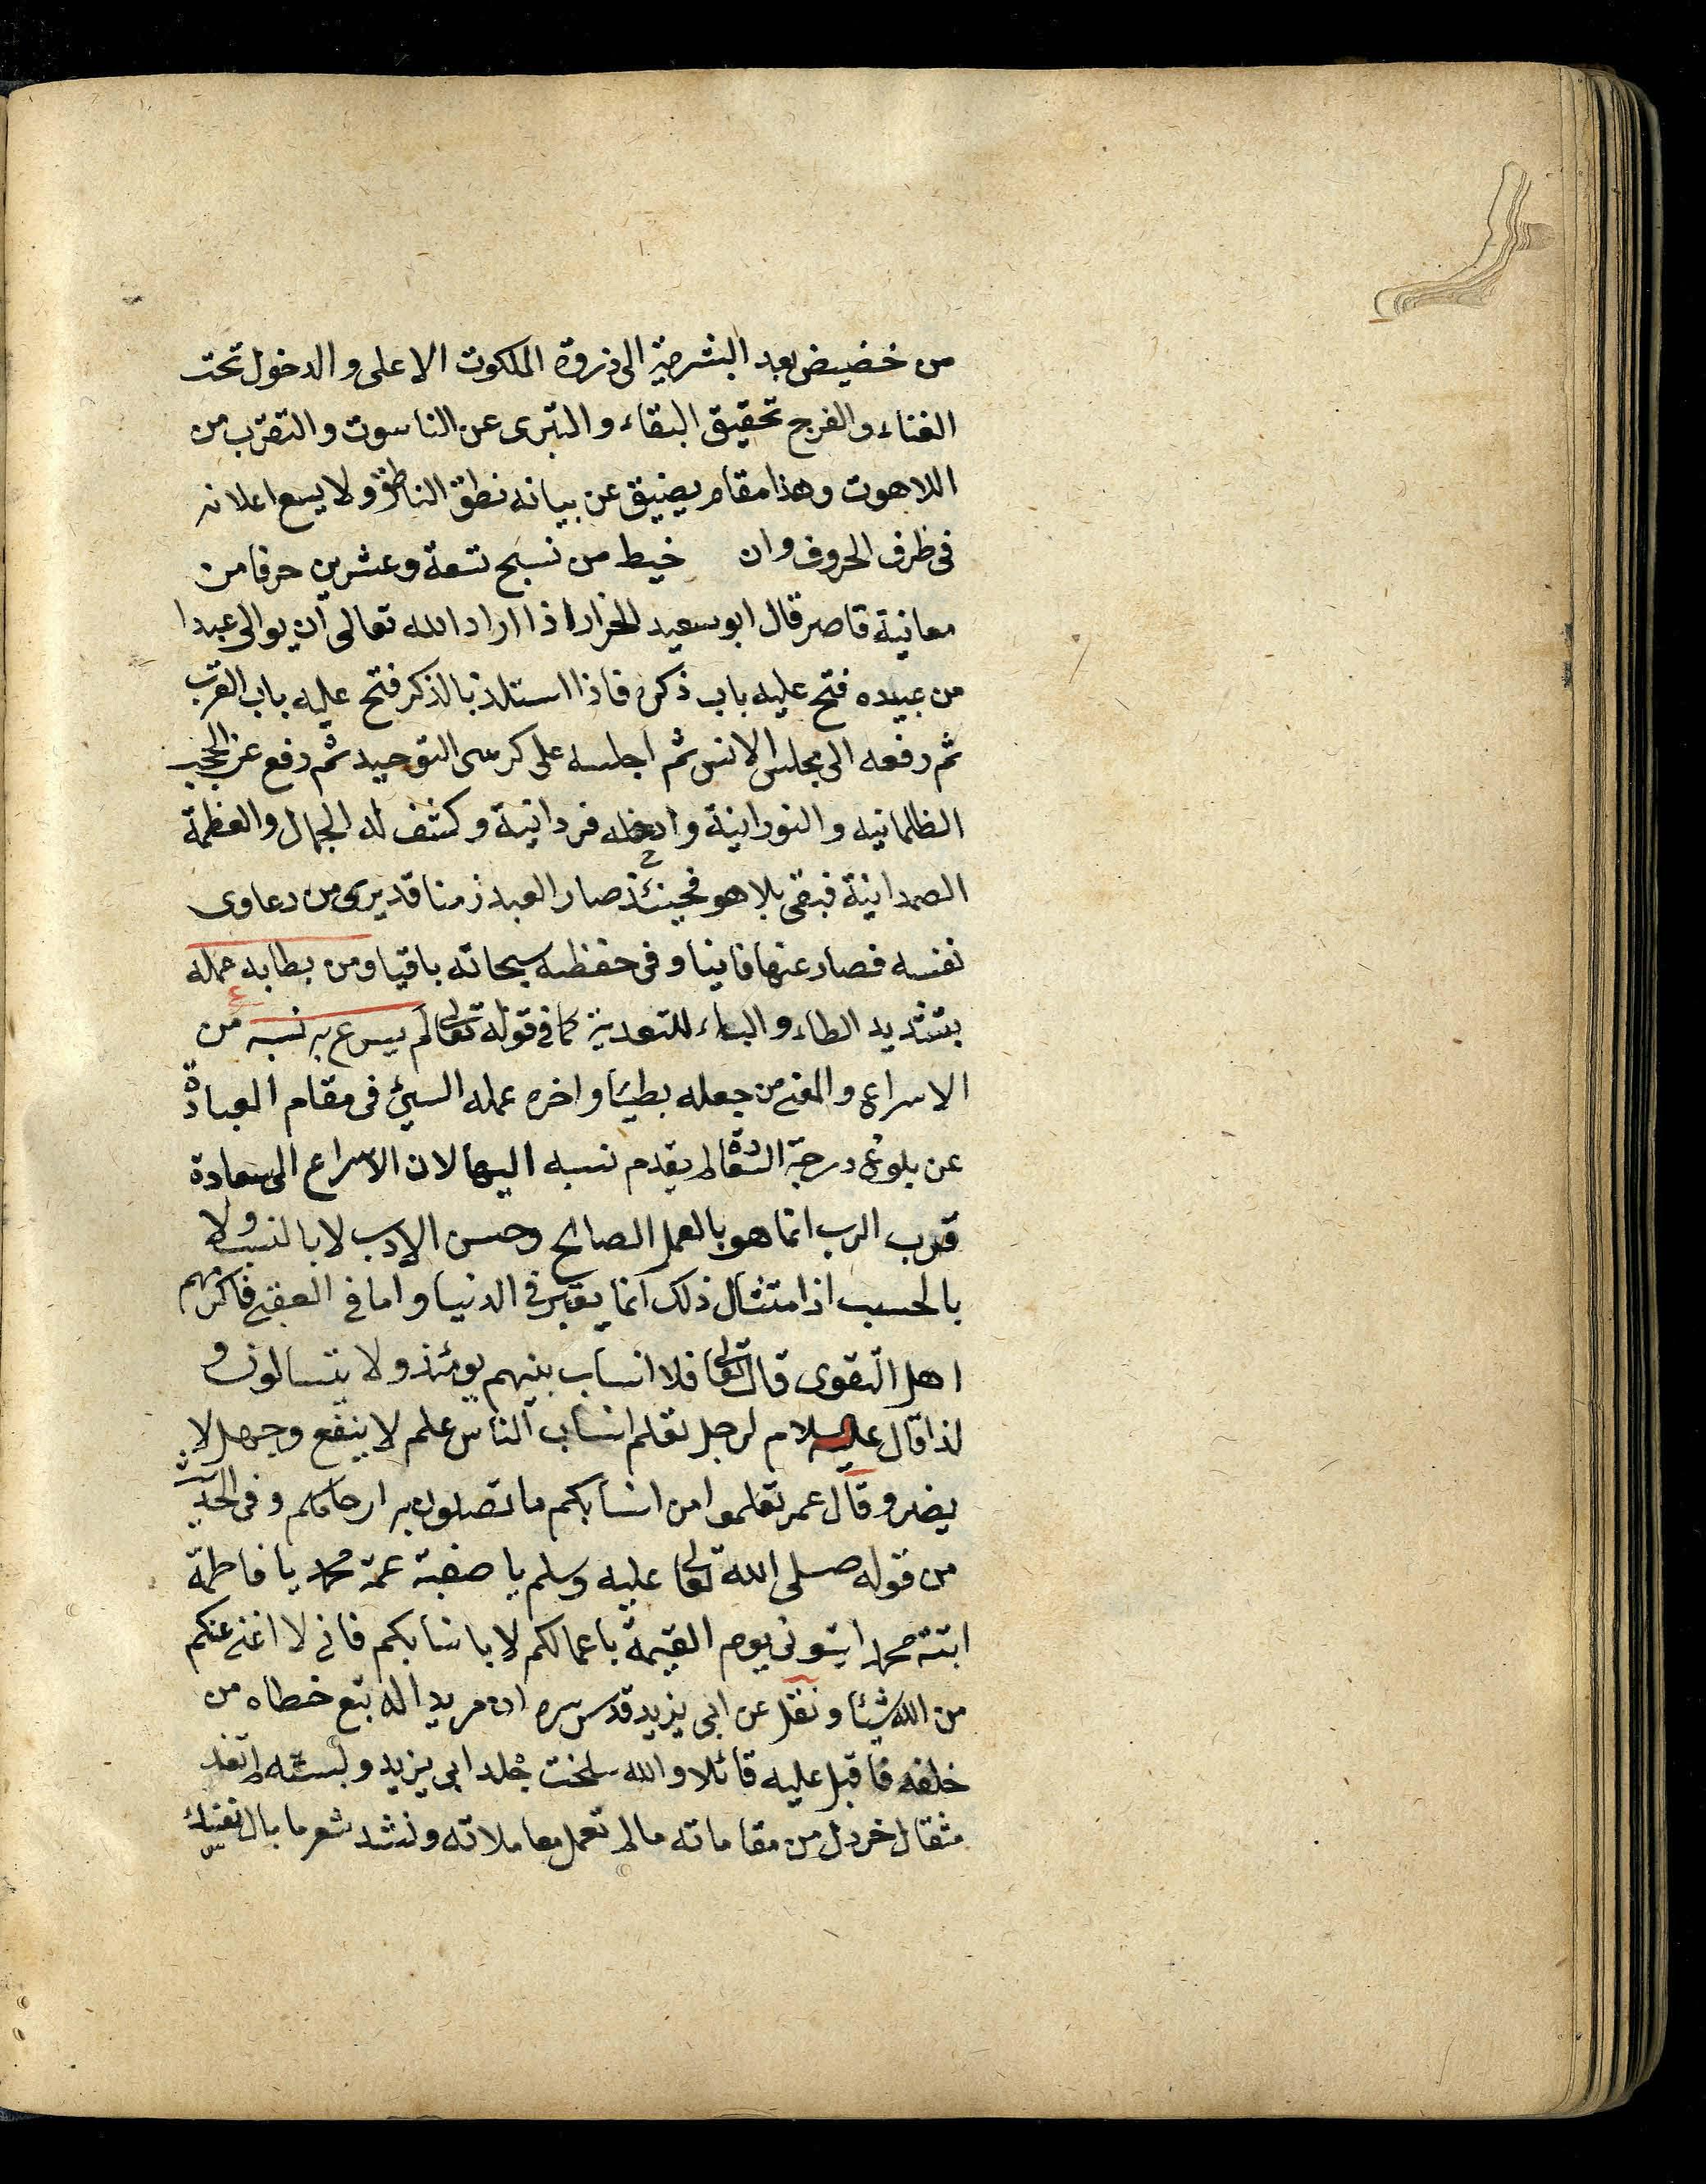 من خضيض بعد البشرية الى ذروة الملكوت الاعلى والدخول تحت
الفناء والفرج تحقيق البقاء والتبرى عن الناسوت والتقرب من
اللاهوت وهذا مقام يضيق عن بيانه نطق الناطق ولا يسع اعلانه
فى ظرف الحروف وان خيط من نسبح تسعة وعشرين حرفا من
معانية قاصر قال ابو سعيد الخرار اذا اراد الله تعالى ان يوالى عبدا
من عبيده فتح عليه باب ذكره فاذا استلذ بالذكر فتح عليه باب القرب
ثم رفعه الى مجلس الانس ثم اجلسه على كرسى التوحيد ثم رفع عن الحجب
الظلمانيه والنورانية وادخله فردانية وكشف له الجمال والعظمة
الصمدانية فبقى بلا هو فحينئذ صار العبد زمنا قد يرى من دعاوى
نفسه فصار عنها فانيا وفى حفظه سبحانه باقيا ومن بطابه عمله
بتشديد الطاء والباء للتعدية كما فى قوله تعالى لم يسرع به نسبه من
الاسراع والمعنى من جعله بطيئا واخره عمله السيئ فى مقام العبادة
عن بلوغ درجة السعادة لم يقدم نسبه اليها لان الاسراع الى سعادة
قرب الرب انما هو بالعمل الصالح وحسن الادب لا بالنسب ولا
بالحسب اذ امتثال ذلك انما يعتبر فى الدنيا واما فى العقبى فاكرمهم
اهل التقوى قال تعالى فلا انساب بينهم يومئذ ولا يتسالون و
لذا قال عليه السلام لرجل تعلم انساب الناس علم لا ينفع وجهل لا
يضر وقال عمر تعلموا من انسابكم ما تصلون به ارحامكم وفى الحديث
من قوله صلى الله تعالى عليه وسلم يا صفية عمة محمد يا فاطمة
ابنة محمد ايتونى يوم القيمة باعمالكم لا بانسابكم فانى لا اغنى عنكم
من الله شيئا ونقل عن ابى يزيد قدس سره ان مريدا له تبع خطاه من
خلفه فاقبل عليه قائلا والله سلخت جلد ابى يزيد ولبسته لم تفد
مثقال خردل من مقاماته ما لم تعمل معاملاته ونشد شعر ما بال نفسك